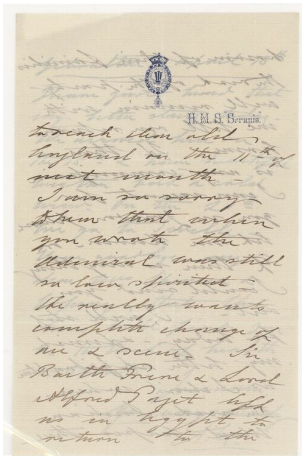 H. M. S. Serapis.
to reach dear old
England on the 11th of
next month
I am so sorry
to hear that when
you wrote the
Admiral was still
so low spirited -
He really wants
complete change of
air & scene. Sir
Bartle Frere & Lord
Alfred Paget left
us in Egypt, to
return to the